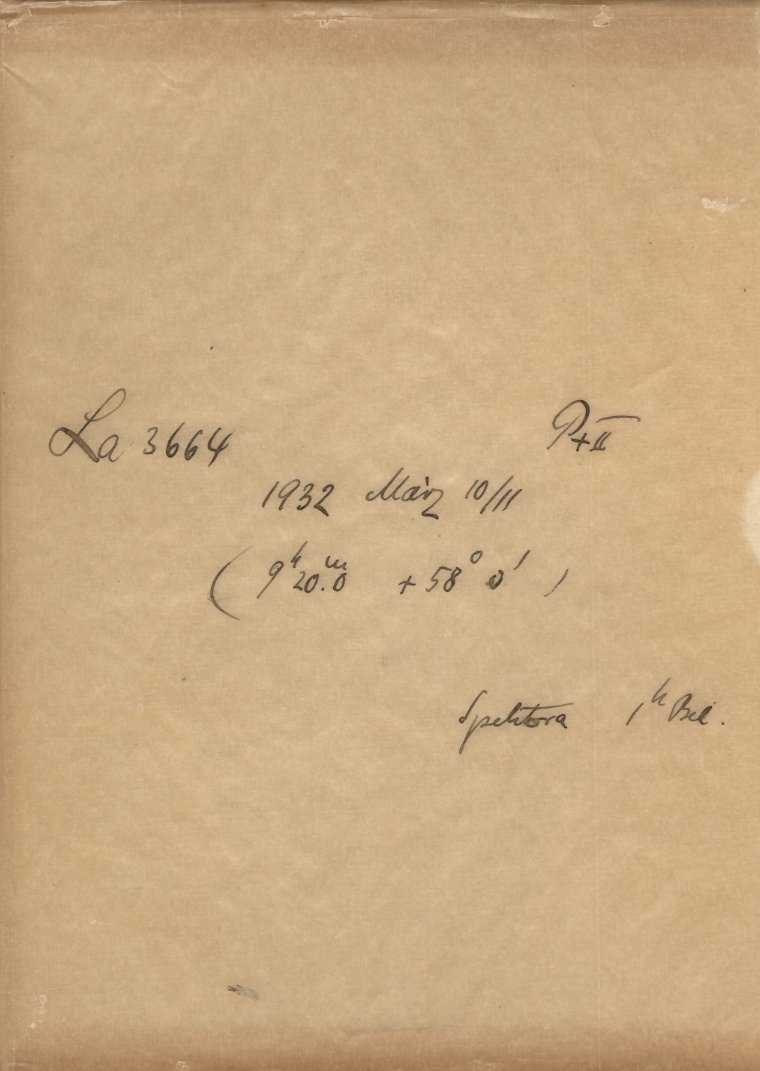 La 3664 P+II
1932 März 10/11
(9ʰ20.ᵐ0 +58° 0')
Spektra 1ʰ Bel.